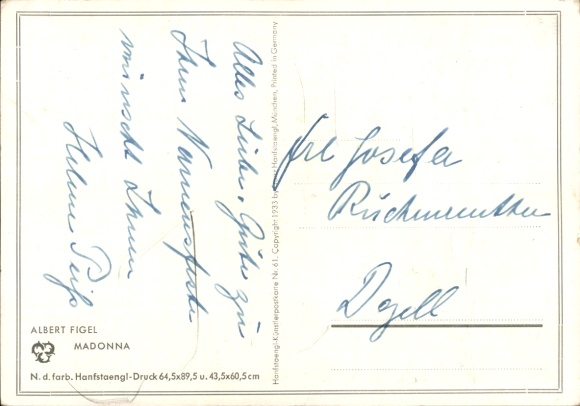 Alles Liebe u. Gute zu
Ihrem Namensfeste
wünscht Ihnen
Frl Josefa
ALBERT FIGEL
MADONNA
N. d. farb. Hanfstaengl-Druck 64,5x89,5 u. 43,5x60,5 cm
Hanfstaengl-Künstlerpostkarte Nr. 61. Copyright 1933 by Hanfstaengl, München, Printed in Germany